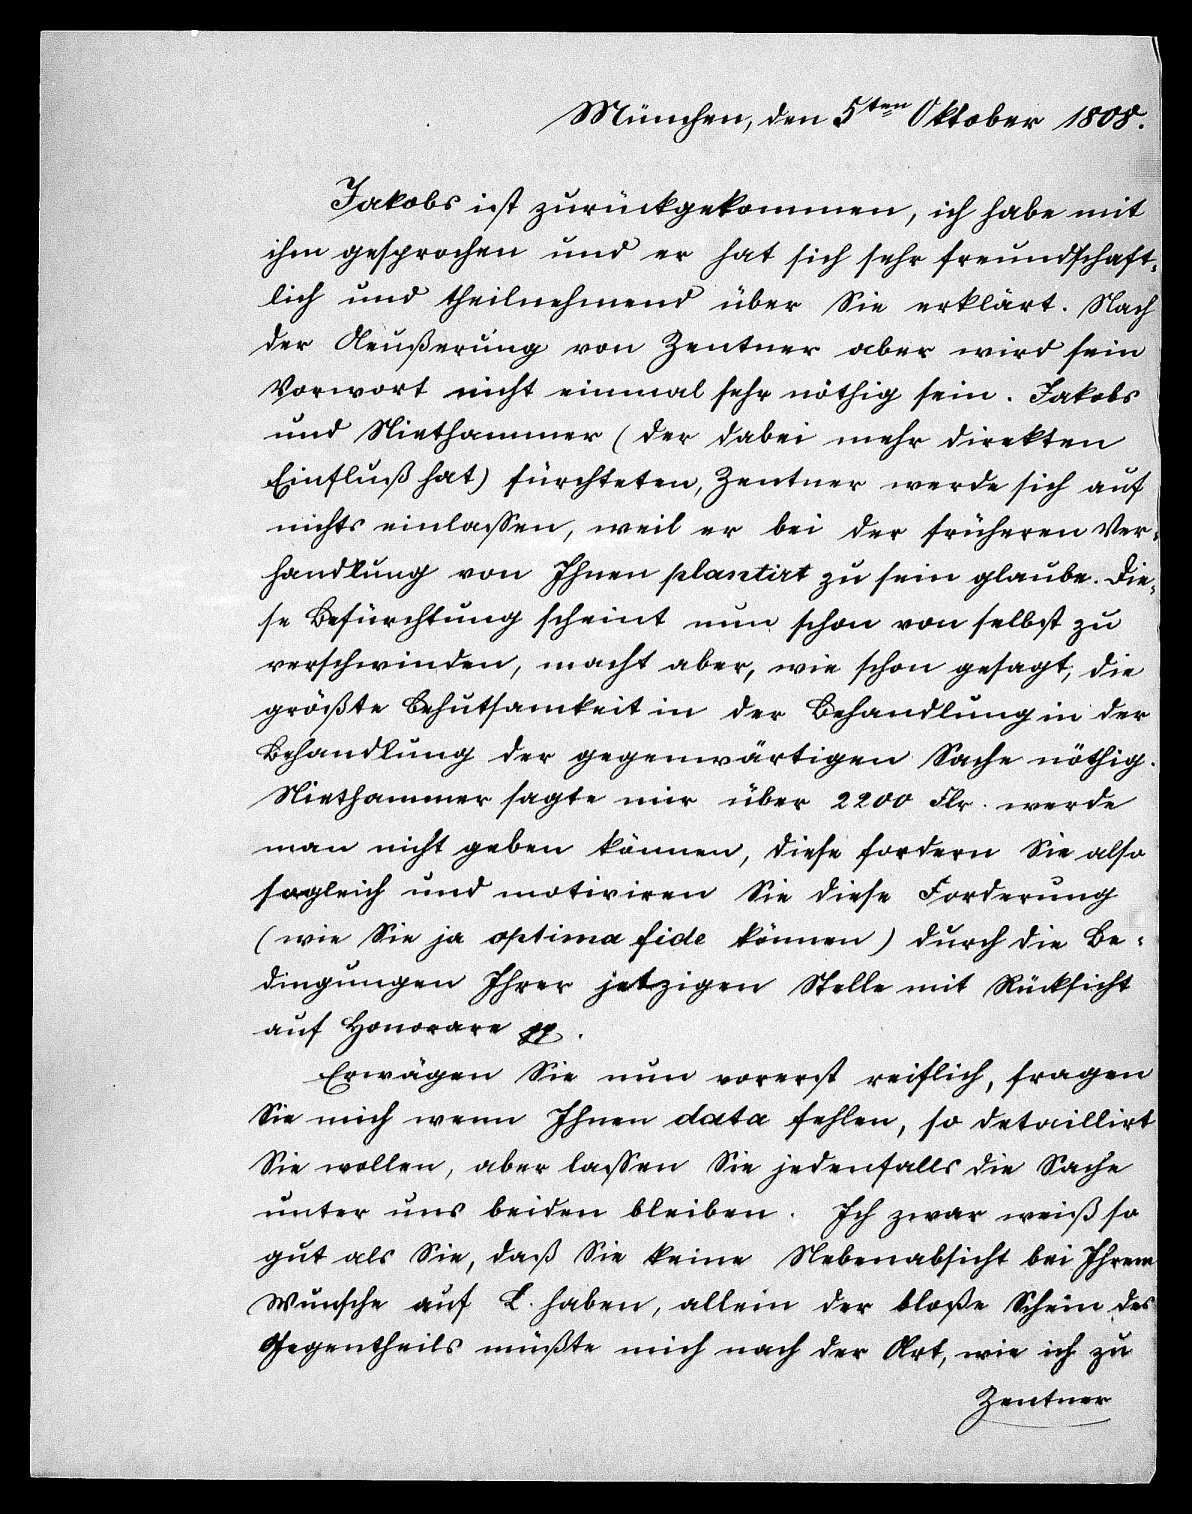 München, den 5ten Oktober 1808.
Jakobs ist zurückgekommen, ich habe mit
ihm gesprochen und er hat sich sehr freundschaft-
lich und theilnehmend über Sie erklärt. Nach
der Aeußerung von Zentner aber wird sein
Vorwort nicht einmal sehr nöthig sein. Jakobs
und Niethammer (der dabei mehr direkten
Einfluß hat) fürchteten, Zentner werde sich auf
nichts einlassen, weil er bei der früheren Ver-
handlung von Ihnen plantirt zu sein glaube. Die-
se Befürchtung scheint nun schon von selbst zu
verschwinden, macht aber, wie schon gesagt, die
größte Behutsamkeit in der Behandlung in der
Behandlung der gegenwärtigen Sache nöthig.
Niethammer sagte mir über 2200 Flr. werde
man nicht geben können, diese fordern Sie also
sogleich und motiviren Sie diese Forderung
(wie Sie ja optima fide können) durch die Be-
dingungen Ihrer jetzigen Stelle mit Rücksicht
auf Honorare pp.
Erwägen Sie nun vorerst reiflich, fragen
Sie mich wenn Ihnen data fehlen, so detaillirt
Sie wollen, aber lassen Sie jedenfalls die Sache
unter uns beiden bleiben. Ich zwar weiß so
gut als Sie, daß Sie keine Nebenabsicht bei Ihrem
Wunsche auf L. haben, allein der bloße Schein des
Gegentheils müßte mich nach der Art, wie ich zu
Zentner